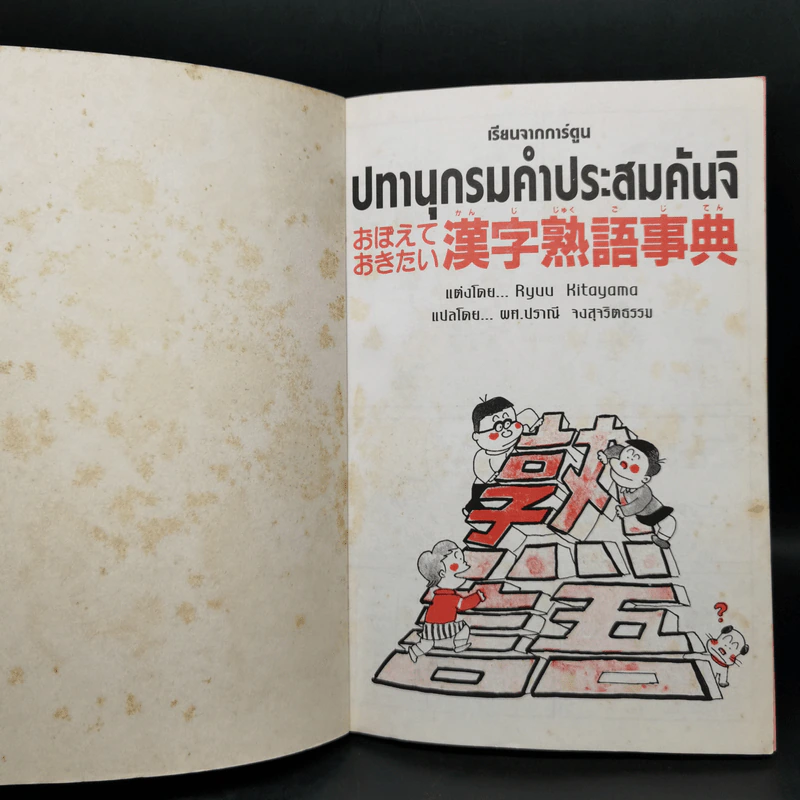 เรียนจากการ์ตูน
ปทานุกรมคำประสมคันจิ
かん じ じゅく ご じ てん
おぼえて
おきたい 漢字熟語事典
แต่งโดย... Ryuu Kitayama
แปลโดย... ผศ.ปราณี จงสุจริตธรรม
熟
語
?